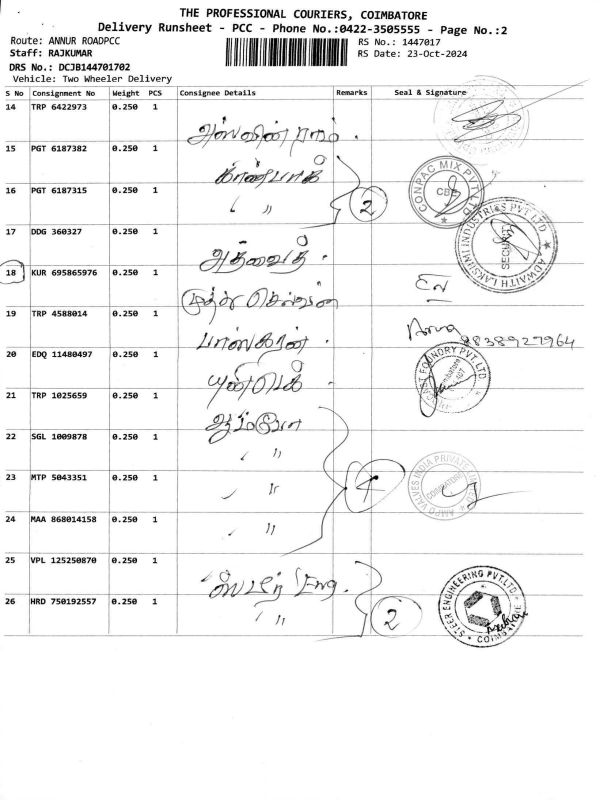 THE PROFESSIONAL COURIERS, COIMBATORE
Delivery Runsheet - PCC - Phone No.:0422-3505555 - Page No.:2
Route: ANNUR ROADPCC
RS No.: 1447017
Staff: RAJKUMAR
RS Date: 23-Oct-2024
DRS No.: DCJB144701702
Vehicle: Two Wheeler Delivery
S No Consignment No Weight PCS Consignee Details Remarks Seal & Signature
14 TRP 6422973 0.250 1
15 PGT 6187382 0.250 1
16 PGT 6187315 0.250 1 " 2
CONPAC MIX PVT LTD CBE
17 DDG 360327 0.250 1 அத்வைத்
ADWAITH LAKSHMI INDUSTRIES PVT LTD SECURITY
18 KUR 695865976 0.250 1 முத்து செல்வன்
19 TRP 4588014 0.250 1 பாஸ்கரன்
8838927964
20 EDQ 11480497 0.250 1
CAST FOUNDRY PVT LTD
21 TRP 1025659 0.250 1 ஆம்போ
22 SGL 1009878 0.250 1 "
23 MTP 5043351 0.250 1 " 4
AMPO VALVES INDIA PRIVATE LIMITED COIMBATORE
24 MAA 868014158 0.250 1 "
25 VPL 125250870 0.250 1 ஸ்டீர் Eng.
26 HRD 750192557 0.250 1 " 2
STEER ENGINEERING PVT.LTD COIMBATORE